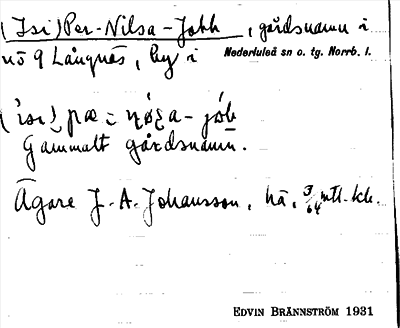 (Isi)Per-Nilsa-Jakk, gårdsnamn i
nö 9 Långnäs, by i Nederluleå sn o. tg. Norrb. l.
Gammalt gårdsnamn.
Ägare J. A. Johansson, hä, 3/64 mtl. kr.
EDVIN BRÄNNSTRÖM 1931